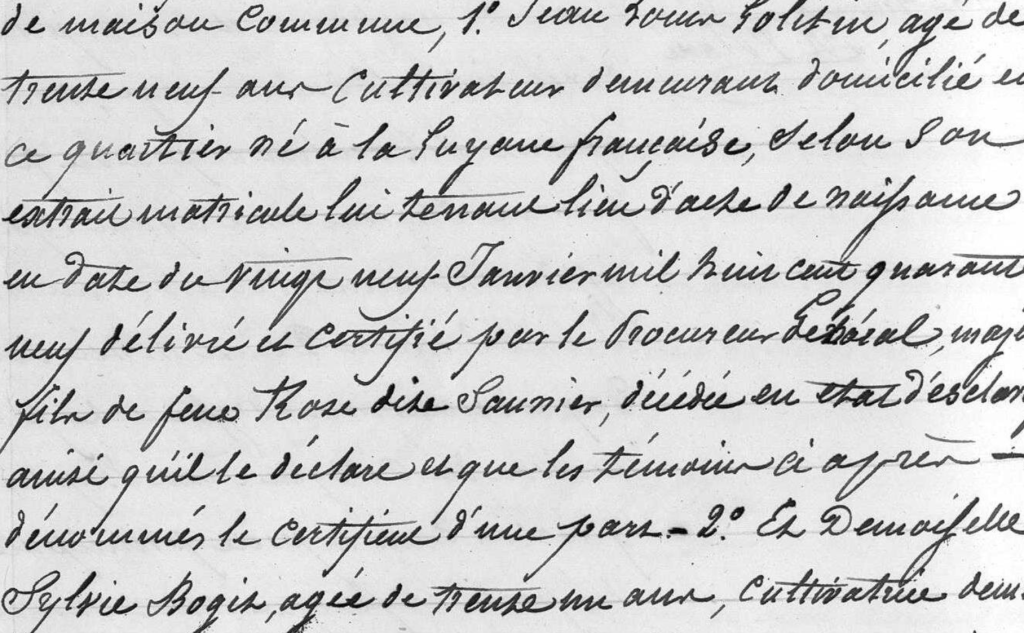 de maison Commune, 1º Jean Louis Goltin, agé de
trente neuf ans Cultivateur demeurant domicilié en
ce quartier né à la Guyane française, Selon Son
extrait matricule lui tenant lieu d'acte de naissance
en date du vingt neuf Janvier mil huit cent quarant
neuf délivré et certifié par le Procureur Général, maje
fils de feue Rose dite Saunier, décédée en état d'esclav
ainsi qu'il le déclare et que les témoins ci après —
dénommés le certifient d'une part - 2º Et Demoiselle
Sylvie Bogis, agée de trente un ans, Cultivatrice dem